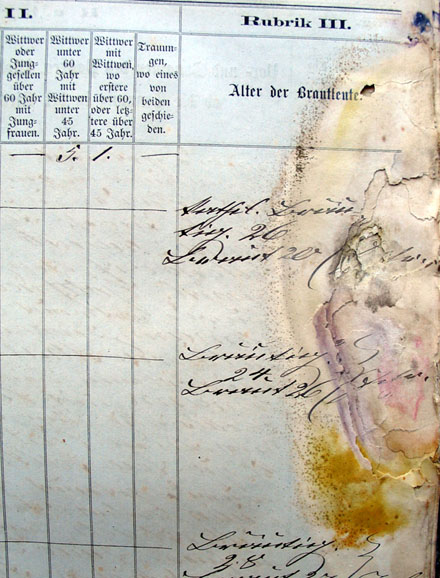 II.
Rubrik III.
Wittwer
oder
Jung-
gesellen
über
60 Jahr
mit
Jung-
frauen.
Wittwer
unter
60
Jahr
mit
Wittwen
unter
45
Jahr.
Wittwer
mit
Wittwen,
wo
erstere
über 60,
oder letz-
tere über
45 Jahr.
Trauun-
gen,
wo eines
von
beiden
geschie-
den.
Alter der Brautleute.
— 5. 1. —
Bräu-
tig. 26
Braut 20
Bräutig.
24.
Braut 26
Bräutig.
28